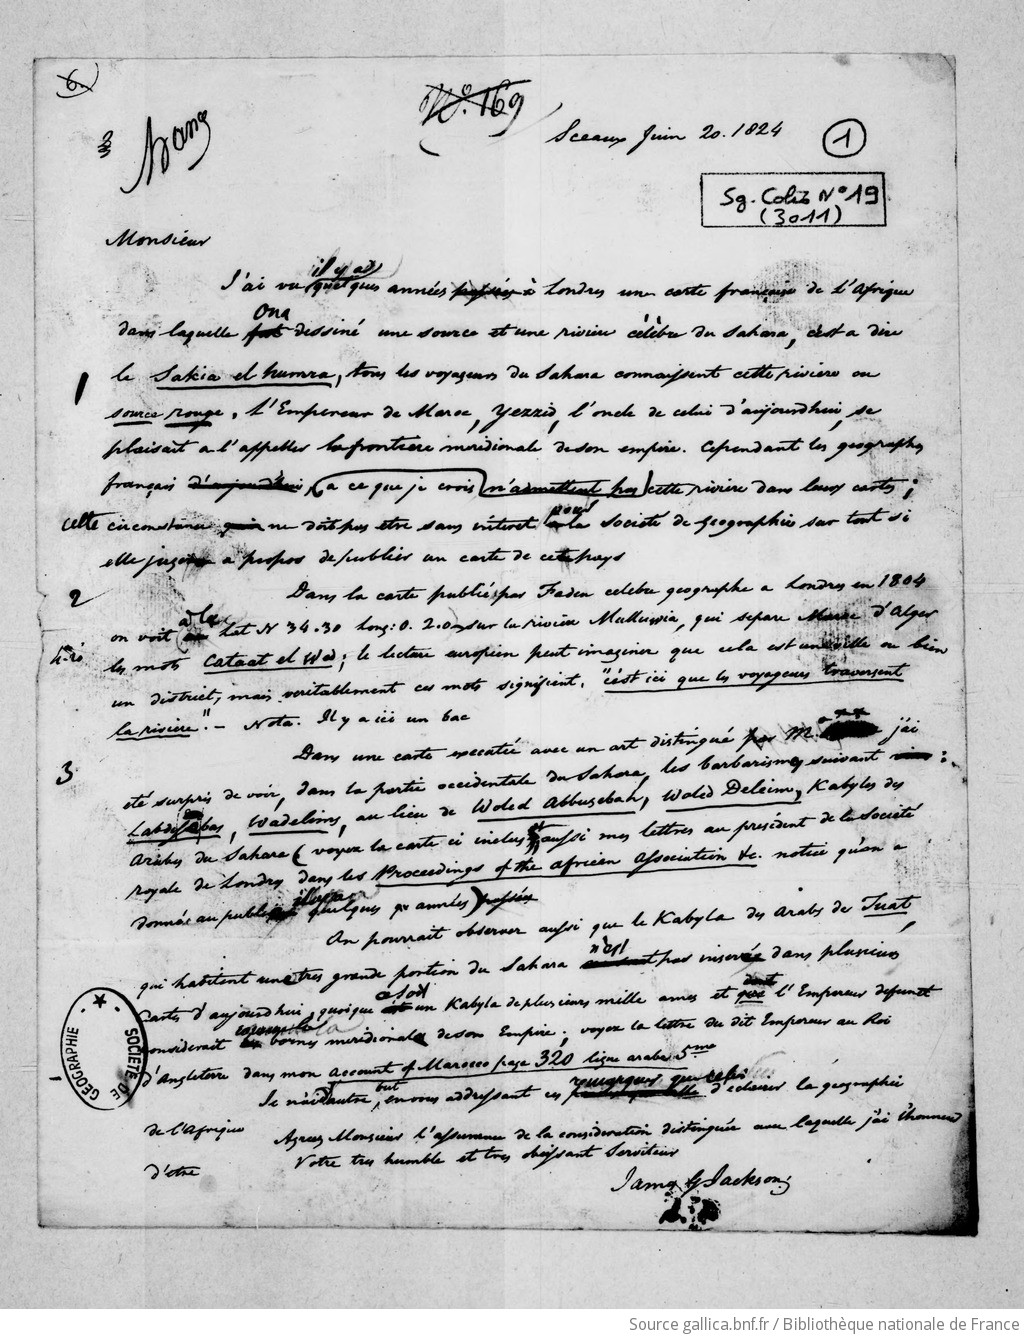 6.
No. 169
Sceaux Juin 20. 1824
1
Sg. Colis No 19
(3011)
Monsieur
il y a
J'ai vu quelques années passées à Londres une carte française de l'Afrique
Ona
dans laquelle fut dessiné une source et une riviere célèbre du Sahara, c'est a dire
1
le Sakia el humra, tous les voyageurs du Sahara connaissent cette riviere ou
source rouge, l'Empereur de Maroc, Yezzid, l'oncle de celui d'aujourdhui, se
plaisait a l'appeller la frontiere meridionale de son empire. Cependant les geographes
français d'aujourd'hui, (a ce que je crois) n'admettent pas cette riviere dans leurs cartes;
pour
cette circonstance ne doit pas etre sans interet la Societé de Geographie sur tout si
elle a propos de publier un carte de cete pays
2
Dans la carte publiée par Faden celebre geographe a Londres en 1804
a la
on voit Lat N 34.30 Long: 0. 2.0 sur la riviere Mulluwia, qui separe Maroc d'Alger
les mots Cataat el Wed; le lecteur europien peut imaginer que cela est une ville ou bien
un district, mais veritablement ces mots signifient, "c'est ici que les voyageurs traversent
la riviere." – Nota. Il y a ici un bac
3
Dans une carte executée avec un art distingué par M. *** j'ai
été surpris de voir, dans la partie occidentale du Sahara, les barbarismes suivant :
Labdessebas, Wadelims, au lieu de Woled Abbusebah, Woled Deleim, Kabyles des
Arabes du Sahara (voyez la carte ci incluse aussi mes lettres au président de la Societé
royale de Londres dans les Proceedings of the African Association &c. notice qu'on a
il y a
donnée au public quelques années) passées
On pourrait observer aussi que le Kabyla des Arabs de Tuat,
n'est
qui habitent une tres grande portion du Sahara pas inserée dans plusieurs
soit
dont
Cartes d'aujourdhui, quoique un Kabyla de plusieurs mille ames et que l'Empereur defunct
comme la
considerait bornes meridionale de son Empire; voyez la lettre du dit Empereur au Roi
d'Angleterre dans mon account of Marocco page 320 ligne arabe 5me
but
remarques que celui
Je n'ai autre, en vous addressant ces d'eclairer la géographie
de l'Afrique
Agreez Monsieur l'assurance de la consideration distinguée avec laquelle j'ai l'honneur
d'etre
Votre tres humble et tres obeissant Serviteur
James G Jackson
SOCIÉTÉ DE GEOGRAPHIE
Source gallica.bnf.fr / Bibliothèque nationale de France